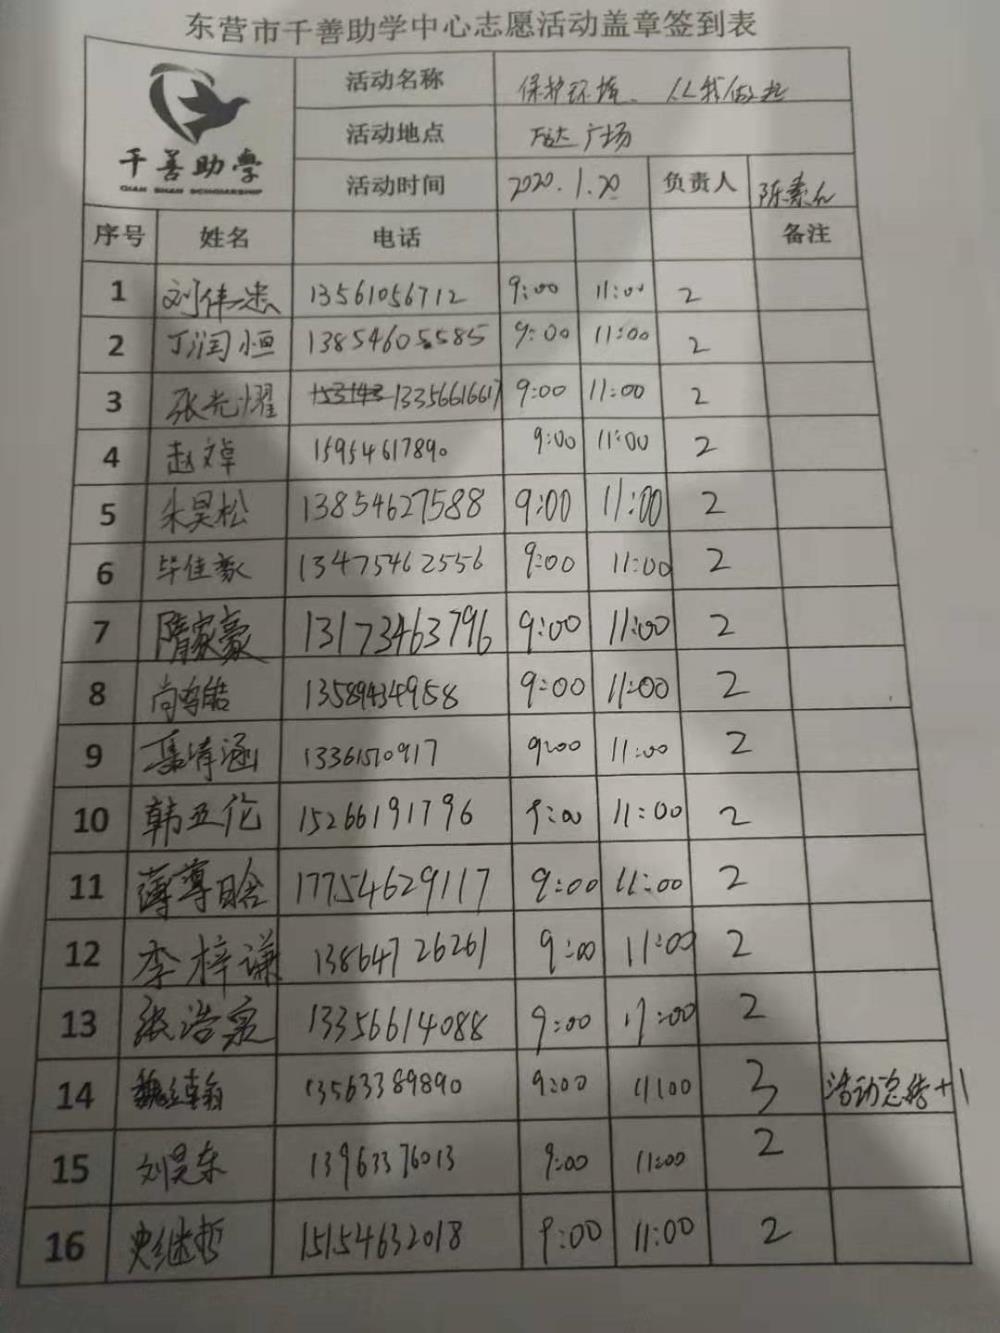 东营市千善助学中心志愿活动盖章签到表
千善助学
QIAN SHAN SCHOLARSHIP
活动名称 保护环境、从我做起
活动地点 万达广场
活动时间 2020.1.20 负责人 陈
序号 姓名 电话 备注
1 刘伟忠 13561056712 9:00 11:00 2
2 丁润恒 13854605585 9:00 11:00 2
3 张光耀 13356616617 9:00 11:00 2
4 赵文卓 15954617890 9:00 11:00 2
5 朱昊松 13854627588 9:00 11:00 2
6 毕佳豪 13475462556 9:00 11:00 2
7 隋家豪 13173463796 9:00 11:00 2
8 尚皓 13589434958 9:00 11:00 2
9 清涵 13361570917 9:00 11:00 2
10 韩亚伦 15266191796 9:00 11:00 2
11 薄 17754629117 9:00 11:00 2
12 李梓谦 13864726261 9:00 11:00 2
13 张浩泉 13356614088 9:00 11:00 2
14 魏 13563389890 9:00 11:00 3 活动总结+1
15 刘昊东 13963376013 9:00 11:00 2
16 史继哲 15154632018 9:00 11:00 2